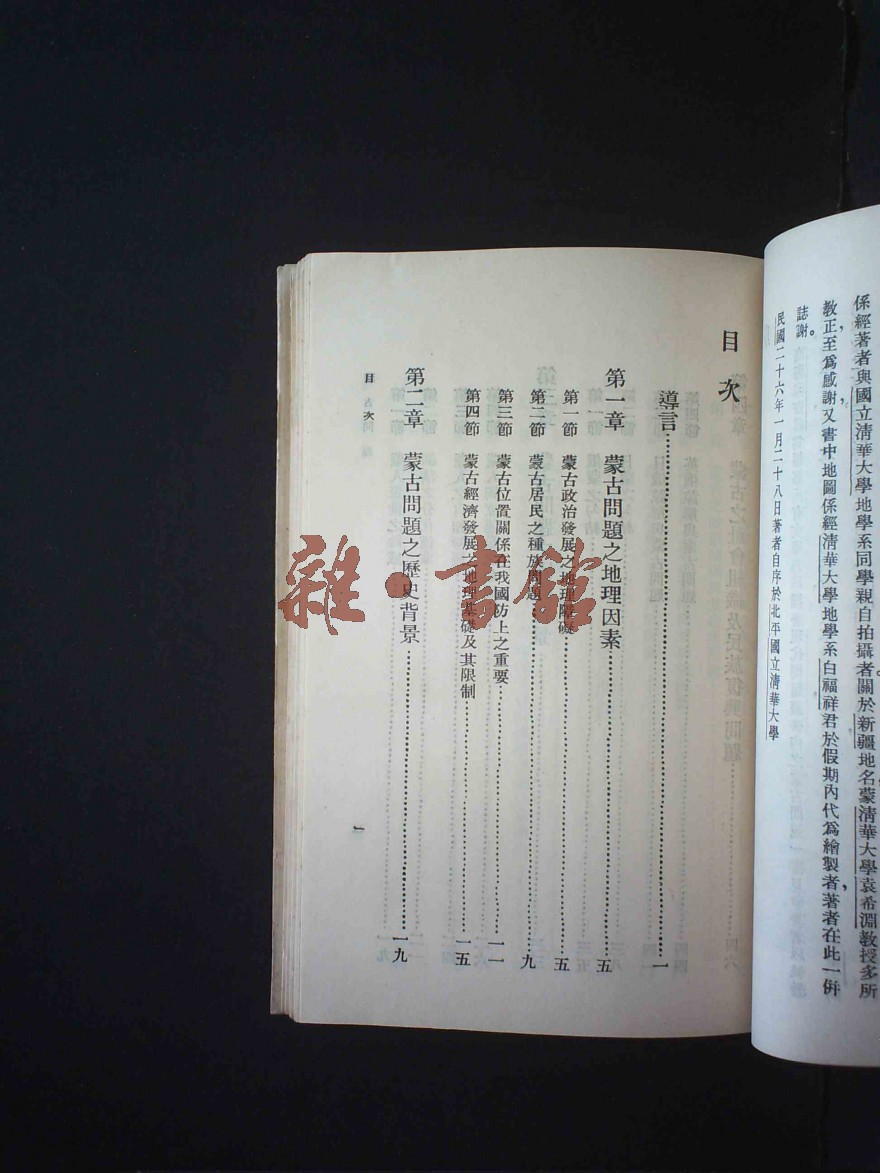 係經著者與國立清華大學地學系同學親自拍攝者關於新疆地名蒙清華大學袁希淵教授多所
教正，至爲感謝，又書中地圖係經清華大學地學系白福祥君於假期內代爲繪製者，著者在此一併
誌謝。
民國二十六年一月二十八日著者自序於北平國立清華大學
目次
導言……一
第一章　蒙古問題之地理因素……五
第一節　蒙古政治發展之地理障礙……五
第二節　蒙古居民之種族問題……九
第三節　蒙古位置關係在我國防上之重要……一一
第四節　蒙古經濟發展之地理基礎及其限制……一五
第二章　蒙古問題之歷史背景……一九
目次
一
雜·書館